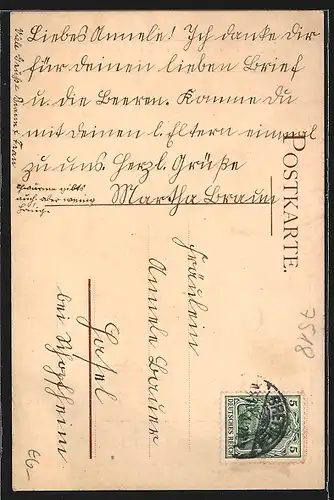 Liebes Annele! Ich danke dir
für deinen lieben Brief
u. die Beeren. Komme du
mit deinen l. Eltern einmal
zu uns. Herzl. Grüße
Martha Braun
Viele Grüße Braun u. Frau
gibts
auch aber wenig
POSTKARTE.
Fräulein
Annele Bauer
Hasel
bei Schopfheim
7518
5
5
DEUTSCHES REICH